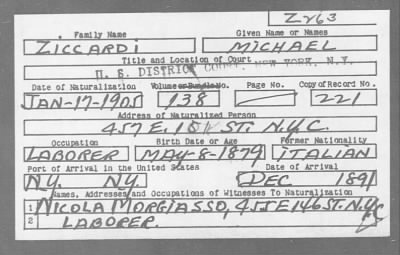 Z263
Family Name Given Name or Names
ZICCARDI MICHAEL
Title and Location of Court
U. S. DISTRICT COURT, NEW YORK, N.Y.
Date of Naturalization Volume or Bundle No. Page No. Copy of Record No.
JAN-17-1905 138 221
Address of Naturalized Person
457 E. ST. N.Y.C.
Occupation Birth Date or Age Former Nationality
LABORER MAY-8-1879 ITALIAN
Port of Arrival in the United States Date of Arrival
N.Y. N.Y. DEC 1891
Names, Addresses and Occupations of Witnesses To Naturalization
1 NICOLA MORGIASSO, 455 E 146 ST. N.Y.C
2 LABORER.